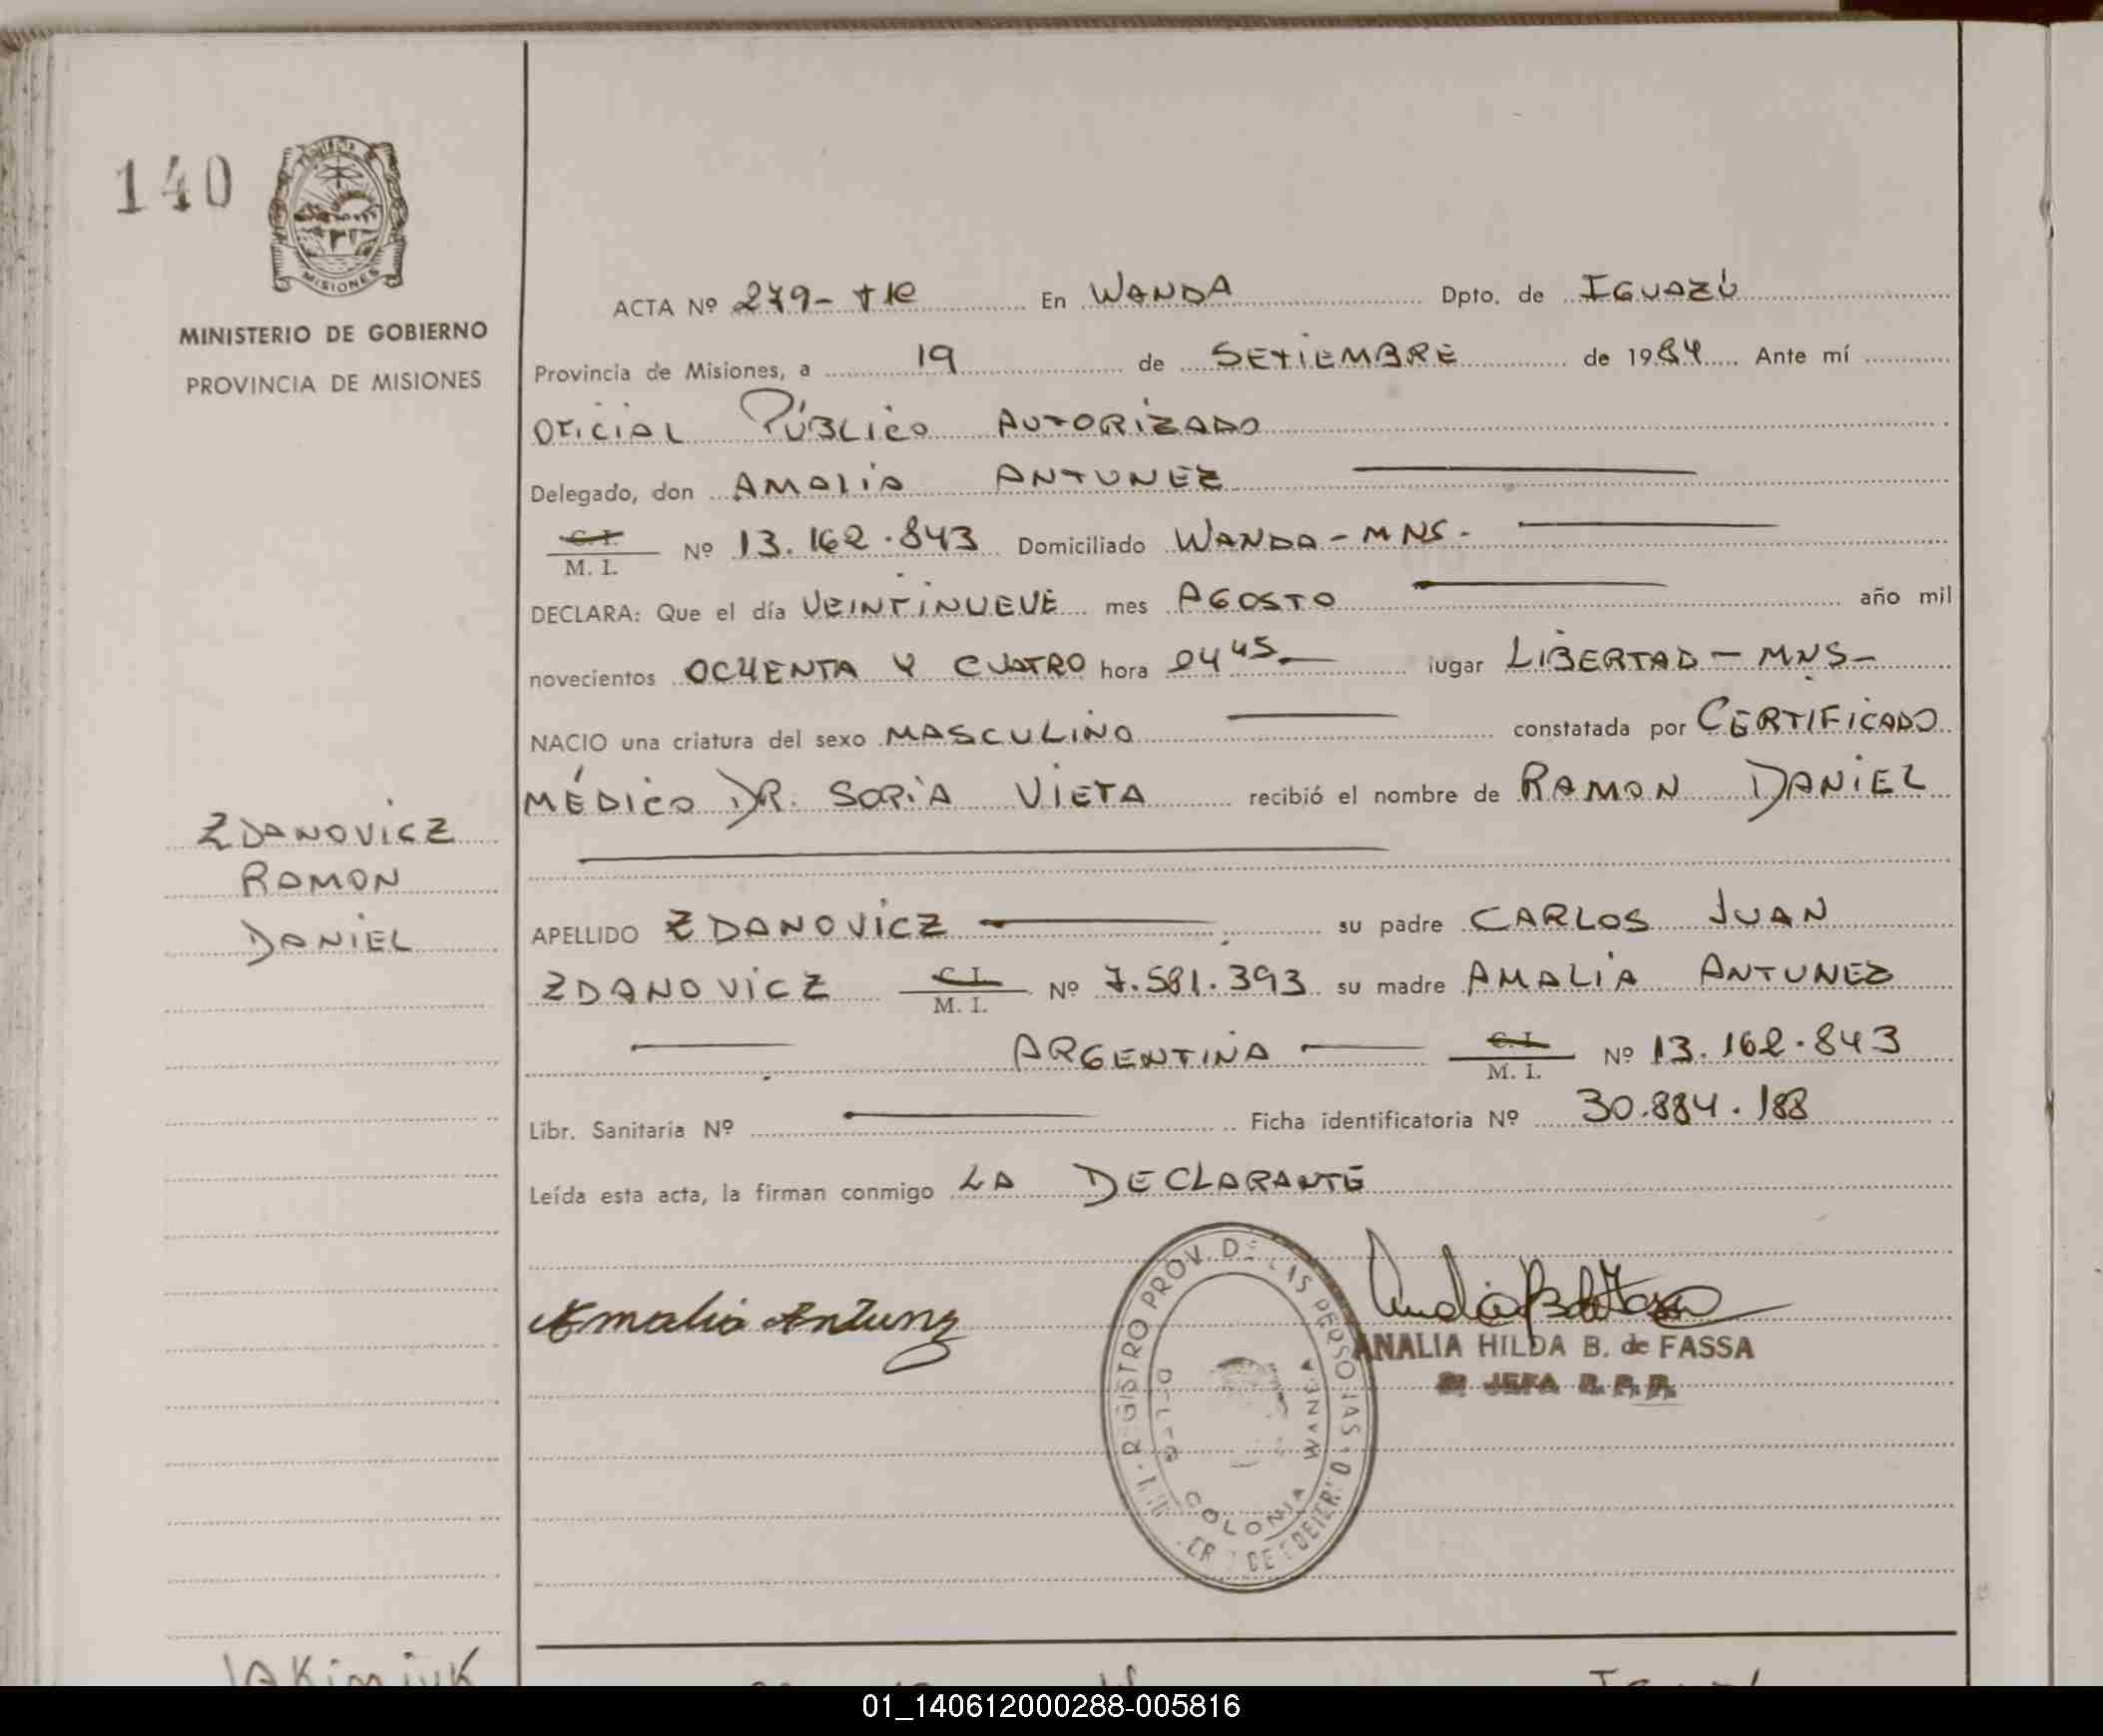 140
MISIONES
MINISTERIO DE GOBIERNO
PROVINCIA DE MISIONES
ZDANOVICZ
RAMON
DANIEL
ACTA Nº 279- En WANDA Dpto. de IGUAZÚ
Provincia de Misiones, a 19 de SETIEMBRE de 1984 Ante mí
OFICIAL PÚBLICO AUTORIZADO
Delegado, don AMALIA ANTUNEZ
C. I.
M. I. Nº 13.162.843 Domiciliado WANDA - MNS.
DECLARA: Que el día VEINTINUEVE mes AGOSTO año mil
novecientos OCHENTA Y CUATRO hora 04 45 lugar LIBERTAD - MNS-
NACIO una criatura del sexo MASCULINO constatada por CERTIFICADO
MÉDICO DR. SORIA VIETA recibió el nombre de RAMON DANIEL
APELLIDO ZDANOVICZ su padre CARLOS JUAN
ZDANOVICZ C. I. M. I. Nº 7.581.393 su madre AMALIA ANTUNEZ
ARGENTINA C. I. M. I. Nº 13.162.843
Libr. Sanitaria Nº Ficha identificatoria Nº 30.884.188
Leída esta acta, la firman conmigo LA DECLARANTE
Amalia Antunz
REGISTRO PROV. DE LAS PERSONAS
COLONIA WANDA
ANALIA HILDA B. de FASSA
JEFA R. P. P.
01_140612000288-005816